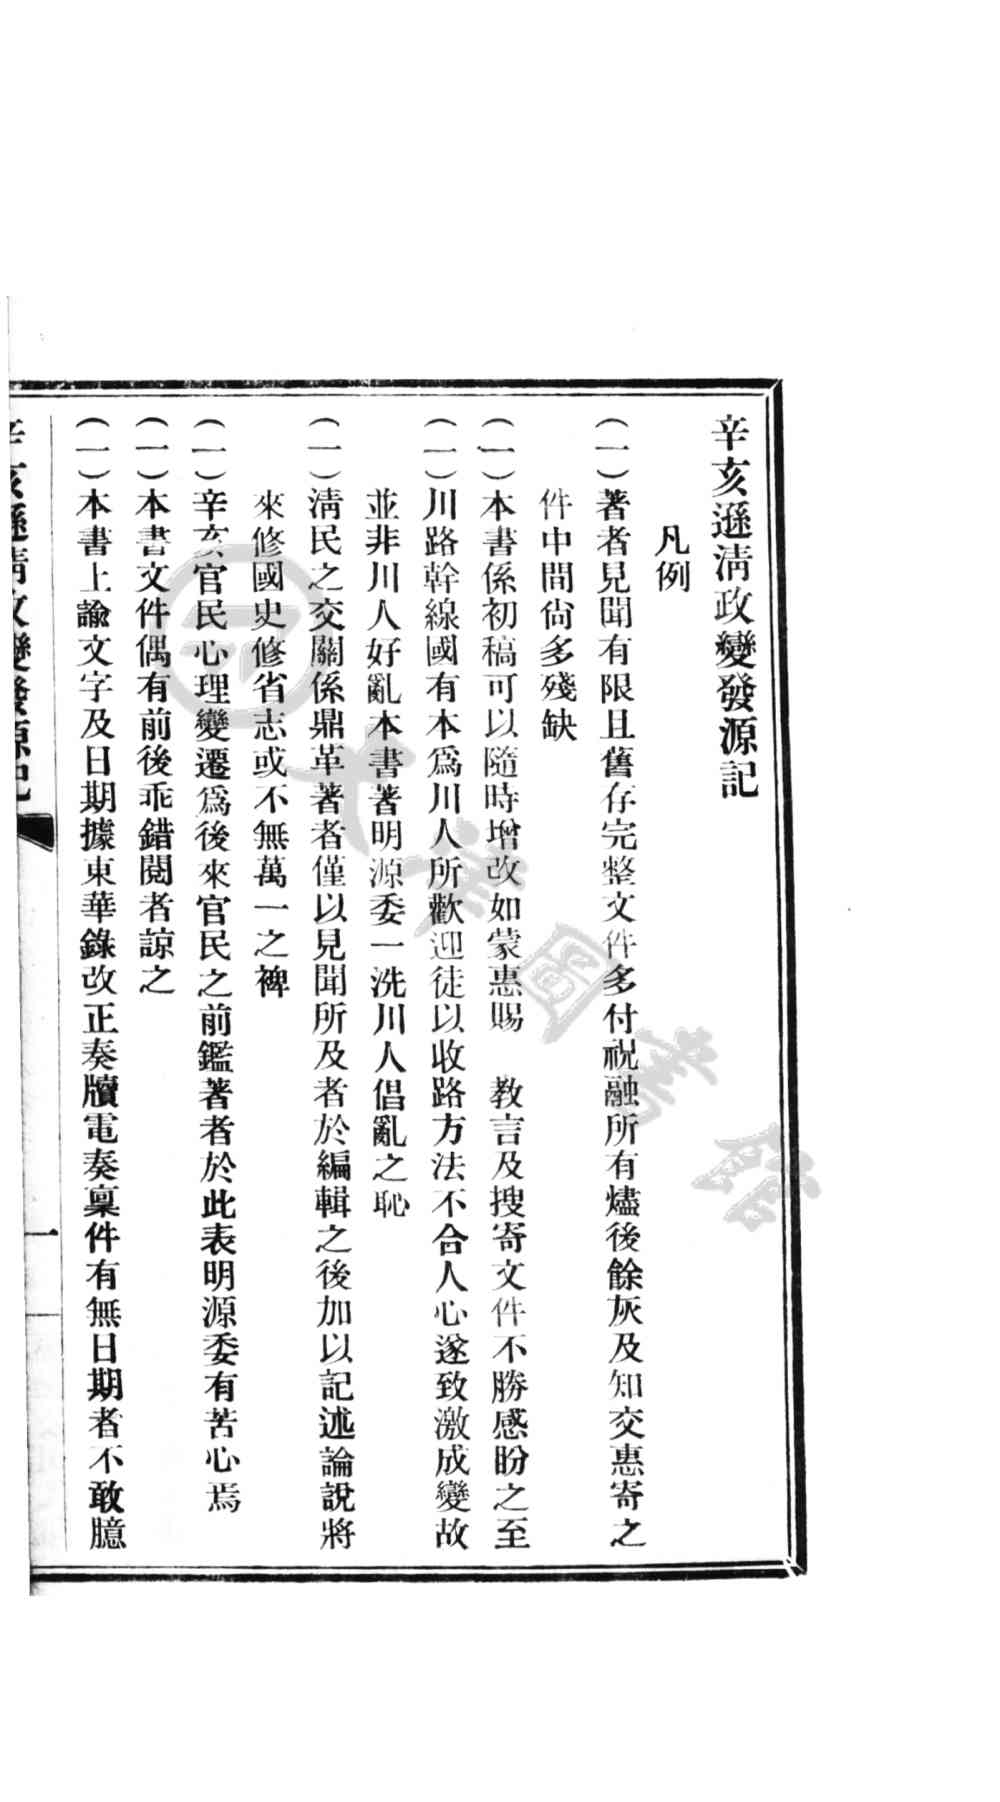 辛亥遜淸政變發源記
凡例
(一)著者見聞有限且舊存完整文件多付祝融所有燼後餘灰及知交惠寄之
件中間尙多殘缺
(一)本書係初稿可以隨時增改如蒙惠賜　敎言及搜寄文件不勝感盼之至
(一)川路幹線國有本爲川人所歡迎徒以收路方法不合人心遂致激成變故
並非川人好亂本書著明源委一洗川人倡亂之恥
(一)淸民之交關係鼎革著者僅以見聞所及者於編輯之後加以記述論說將
來修國史修省志或不無萬一之裨
(一)辛亥官民心理變遷爲後來官民之前鑑著者於此表明源委有苦心焉
(一)本書文件偶有前後乖錯閱者諒之
(一)本書上諭文字及日期據東華錄改正奏牘電奏稟件有無日期者不敢臆
辛亥遜淸政變發源記
一
大業圖書館